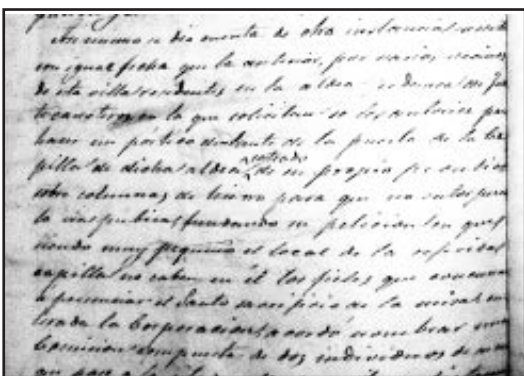 Asi mismo se dio cuenta de otra instancia
con igual fecha que la anterior, por varios vecinos
de esta villa residentes en la aldea
en la que solicitan se les autorice para
hacer un pórtico delante de la puerta de la Ca
pilla de dicha aldea costeado de su propio
sobre columnas de hierro para que no entorpezca
la via publica, fundando su peticion en que
siendo muy pequeño el local de la referida
capilla no caben en él los fieles que concurren
a presenciar el Santo sacrificio de la misa, en
terada la Corporacion, acordó nombrar una
Comision compuesta de dos individuos de
que pase a